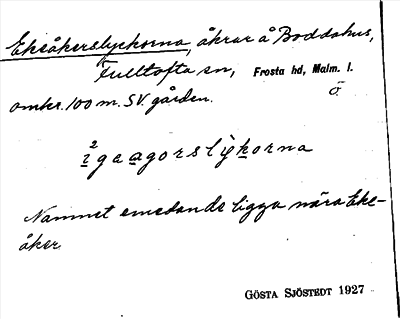 Ekeåkerslyckorna, åkrar å Boddahus,
Fulltofta sn, Frosta hd, Malm. l.
omkr. 100 m. SV. gården. ö
Namnet emedan de ligga nära Eke-
åker
GÖSTA SJÖSTEDT 1927